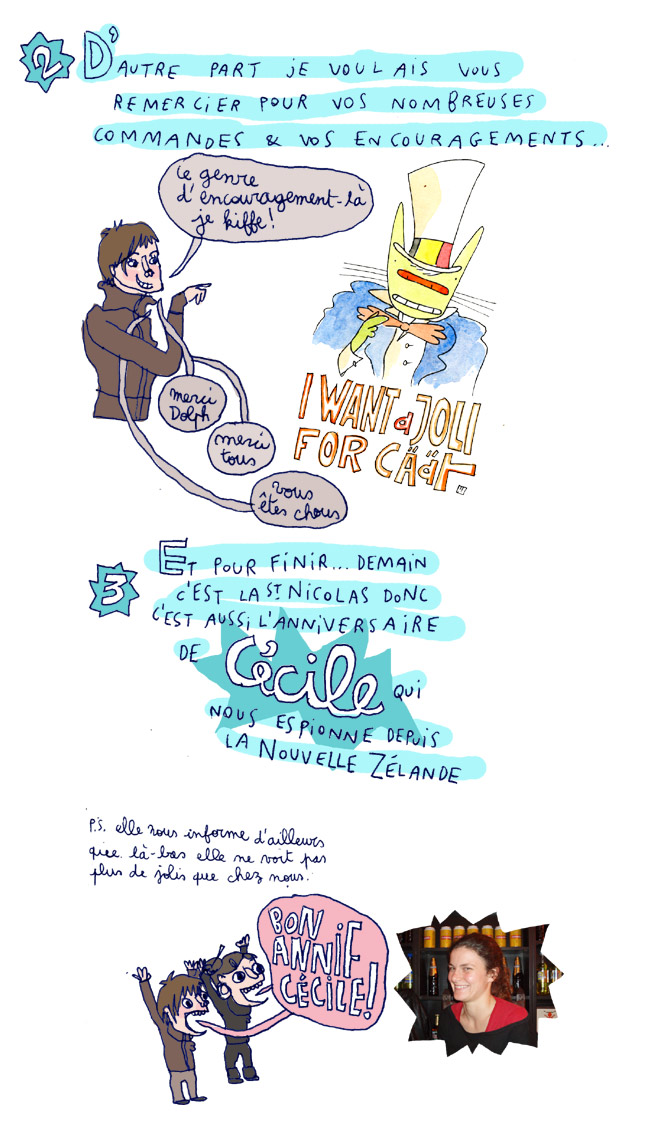 2 D'AUTRE PART JE VOULAIS VOUS
REMERCIER POUR VOS NOMBREUSES
COMMANDES & VOS ENCOURAGEMENTS...
Ce genre
d'encouragement-là
je kiffe!
merci
Dolph
merci
tous
vous
êtes chous
I WANT a JOLI
FOR CÄäT
3 ET POUR FINIR... DEMAIN
C'EST LA ST NICOLAS DONC
C'EST AUSSI L'ANNIVERSAIRE
DE Cécile QUI
NOUS ESPIONNE DEPUIS
LA NOUVELLE ZÉLANDE
P.S. elle nous informe d'ailleurs
que là-bas elle ne voit pas
plus de jolis que chez nous.
BON
ANNIF
CÉCILE!